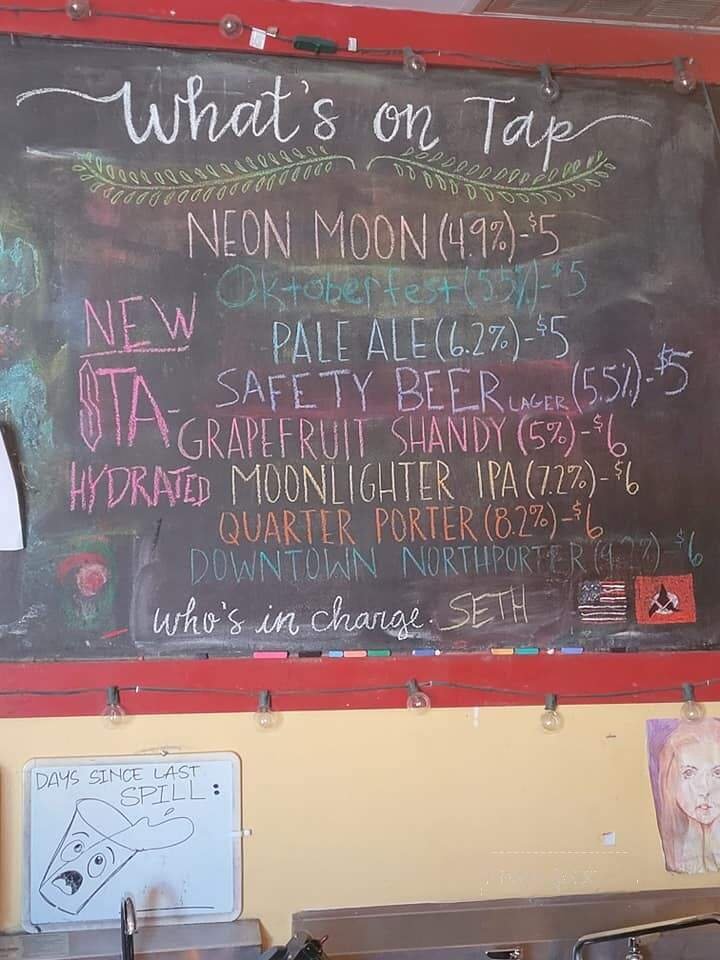 What's on Tap
NEON MOON (4.9%)-$5
Oktoberfest (5.5%)-$5
NEW
PALE ALE (6.2%)-$5
SAFETY BEER LAGER (5.5%)-$5
STA-
GRAPEFRUIT SHANDY (5%)-$6
HYDRATED
MOONLIGHTER IPA (7.2%)-$6
QUARTER PORTER (8.2%)-$6
DOWNTOWN NORTHPORTER -$6
who's in charge. SETH
DAYS SINCE LAST
SPILL: